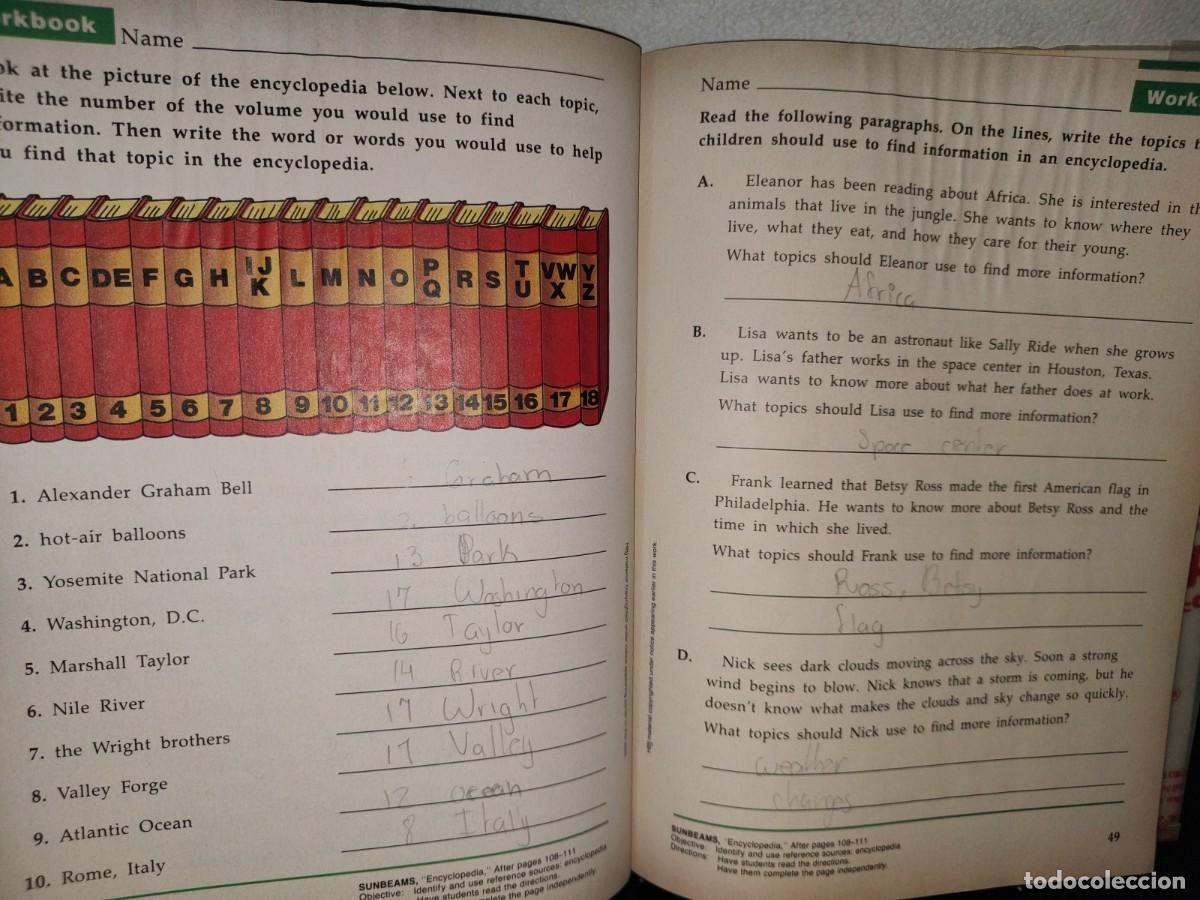 rkbook
Name
ok at the picture of the encyclopedia below. Next to each topic,
ite the number of the volume you would use to find
formation. Then write the word or words you would use to help
u find that topic in the encyclopedia.
A B C DE F G H IJK L M N O PQ R S TU VWX YZ
1 2 3 4 5 6 7 8 9 10 11 12 13 14 15 16 17 18
1. Alexander Graham Bell Graham
2. hot-air balloons 2 balloons
3. Yosemite National Park 13 Park
4. Washington, D.C. 17 Washington
5. Marshall Taylor 16 Taylor
6. Nile River 14 River
7. the Wright brothers 17 Wright
8. Valley Forge 17 Valley
9. Atlantic Ocean 12 ocean
10. Rome, Italy 8 Italy
SUNBEAMS, "Encyclopedia," After pages 108–111
Objective: Identify and use reference sources: encyclopedia
Have students read the directions.
the page independently.
Name
Work
Read the following paragraphs. On the lines, write the topics t
children should use to find information in an encyclopedia.
A. Eleanor has been reading about Africa. She is interested in th
animals that live in the jungle. She wants to know where they
live, what they eat, and how they care for their young.
What topics should Eleanor use to find more information?
Africa
B. Lisa wants to be an astronaut like Sally Ride when she grows
up. Lisa's father works in the space center in Houston, Texas.
Lisa wants to know more about what her father does at work.
What topics should Lisa use to find more information?
Space center
C. Frank learned that Betsy Ross made the first American flag in
Philadelphia. He wants to know more about Betsy Ross and the
time in which she lived.
What topics should Frank use to find more information?
Ross, Betsy
flag
D. Nick sees dark clouds moving across the sky. Soon a strong
wind begins to blow. Nick knows that a storm is coming, but he
doesn't know what makes the clouds and sky change so quickly.
What topics should Nick use to find more information?
weather
changes
SUNBEAMS, "Encyclopedia," After pages 108–111
Objective: Identify and use reference sources: encyclopedia
Directions: Have students read the directions.
Have them complete the page independently.
49
HBJ material copyrighted under notice appearing earlier in this work.
todocoleccion